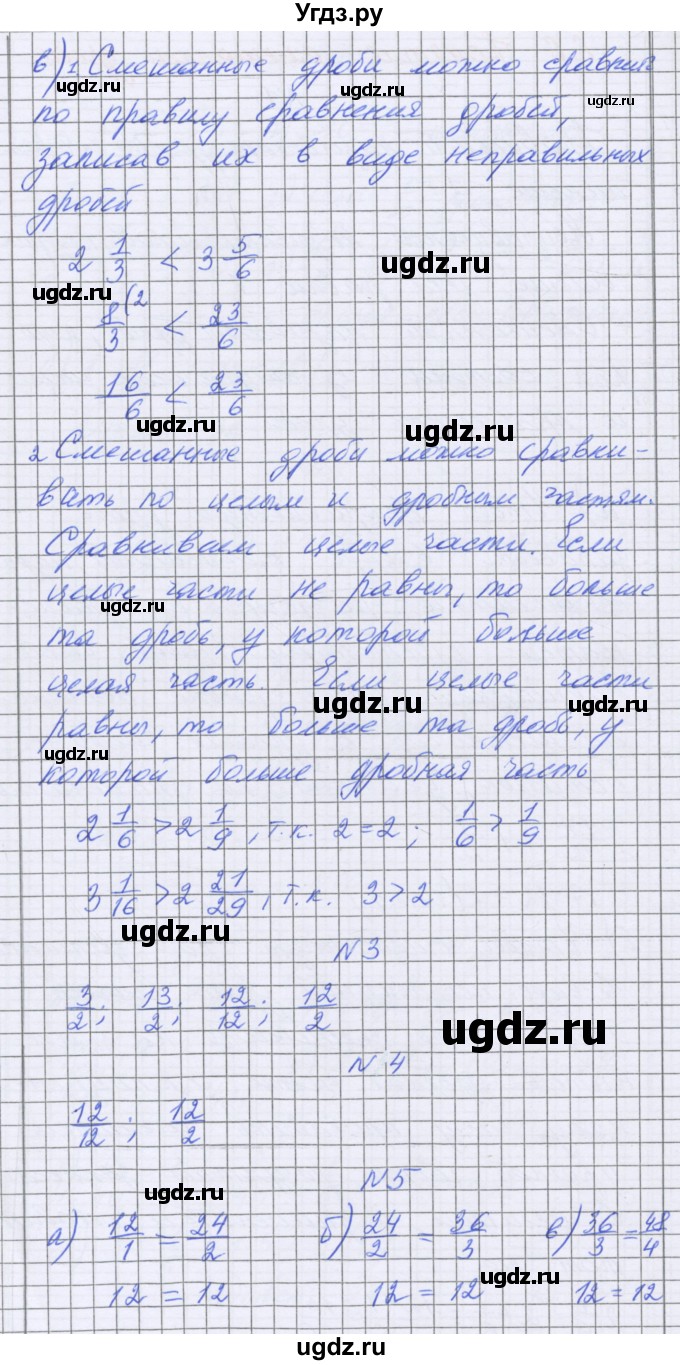 Угдз.ру
в) 1. Смешанные дроби можно сравнить
ugdz.ru ugdz.ru ugdz.ru
по правилу сравнения дробей,
записав их в виде неправильных
дробей
2 1/3 < 3 5/6
ugdz.ru
ugdz.ru
8/3 (2 < 23/6
16/6 < 23/6
ugdz.ru
ugdz.ru
2 Смешанные дроби можно сравни-
вать по целым и дробным частям.
Сравниваем целые части. Если
целые части не равны, то больше
ugdz.ru
та дробь, у которой больше
целая часть. Если целые части
ugdz.ru ugdz.ru
равны, то больше та дробь, у
ugdz.ru
которой больше дробная часть
2 1/6 > 2 1/9, т.к. 2 = 2; 1/6 > 1/9
3 1/16 > 2 21/29, т.к. 3 > 2
ugdz.ru
N3
3/2; 13/2; 12/12; 12/2
ugdz.ru
N4
12/12; 12/2
N5
ugdz.ru
а) 12/1 = 24/2 б) 24/2 = 36/3 в) 36/3 = 48/4
ugdz.ru
12 = 12 12 = 12 12 = 12
ugdz.ru